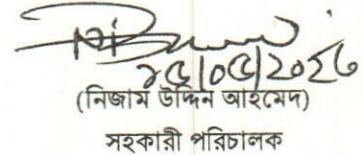 ২৫/০৫/২০২৬
(নিজাম উদ্দিন আহমেদ)
সহকারী পরিচালক